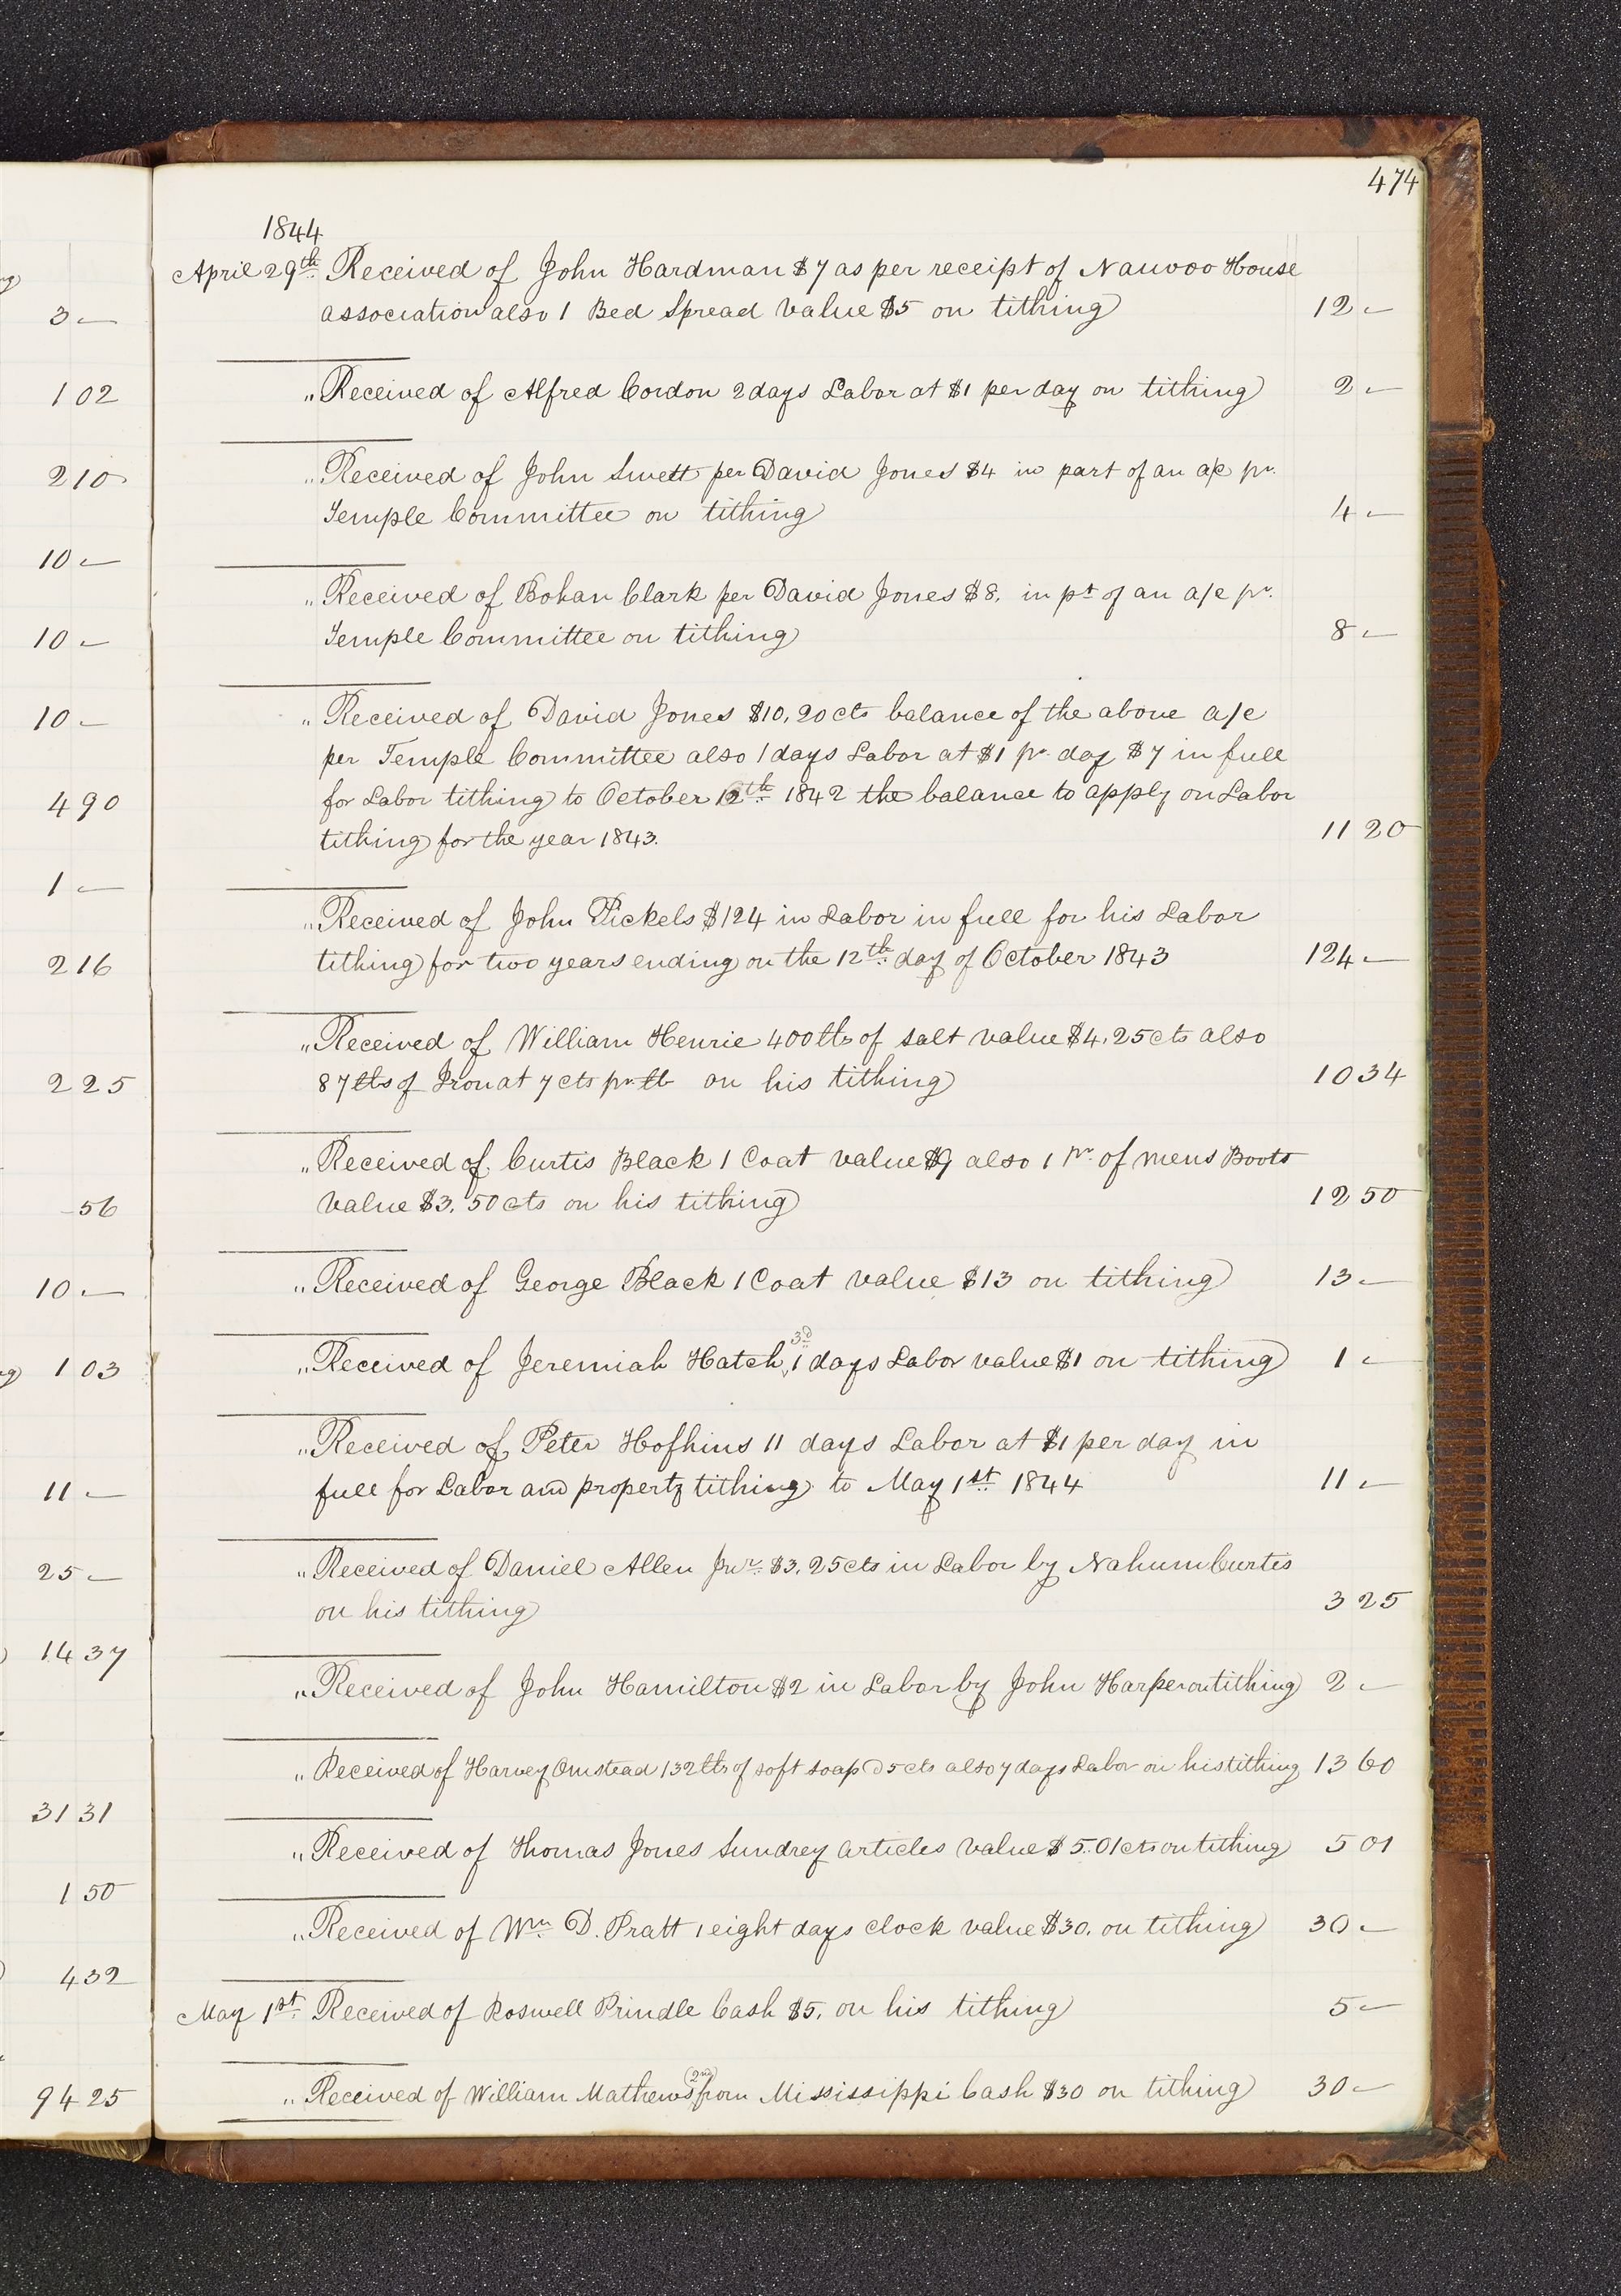 3 —
1 02
2 10
10 —
10 —
10 —
4 90
1 —
2 16
2 25
56
10 —
1 03
11 —
25 —
14 37
31 31
1 50
4 32
94 25
474
1844
April 29th Received of John Hardman $7 as per receipt of Nauvoo House
association also 1 Bed Spread value $5 on tithing 12 —
" Received of Alfred Cordon 2 days Labor at $1 per day on tithing 2 —
" Received of John Swett per David Jones $4 in part of an a/c pr.
Temple Committee on tithing 4 —
" Received of Bohan Clark per David Jones $8, in pt of an a/c pr.
Temple Committee on tithing 8 —
" Received of David Jones $10,20 cts balance of the above a/c
per Temple Committee also 1 days Labor at $1 pr day $7 in full
for Labor tithing to October 12th 1842 the balance to apply on Labor
tithing for the year 1843. 11 20
" Received of John Pickels $124 in Labor in full for his Labor
tithing for two years ending on the 12th day of October 1843 124 —
" Received of William Henrie 400 lbs of salt value $4,25 cts also
87 lbs of Iron at 7 cts pr lb on his tithing 10 34
" Received of Curtis Black 1 Coat value $9 also 1 pr of mens Boots
value $3,50 cts on his tithing 12 50
" Received of George Black 1 Coat value $13 on tithing 13 —
" Received of Jeremiah Hatch, 3d 1 days Labor value $1 on tithing 1 —
" Received of Peter Hofhins 11 days Labor at $1 per day in
full for Labor and property tithing to May 1st 1844 11 —
" Received of Daniel Allen Jnr $3,25 cts in Labor by Nahum Curtis
on his tithing 3 25
" Received of John Hamilton $2 in Labor by John Harper on tithing 2 —
" Received of Harvey Omstead 132 lbs of soft soap @ 5 cts also 7 days Labor on his tithing 13 60
" Received of Thomas Jones Sundrey articles value $5.01 cts on tithing 5 01
" Received of Wm. D. Pratt 1 eight days clock value $30. on tithing 30 —
May 1st Received of Roswell Prindle Cash $5, on his tithing 5 —
" Received of William Mathews (2nd) from Mississippi Cash $30 on tithing 30 —